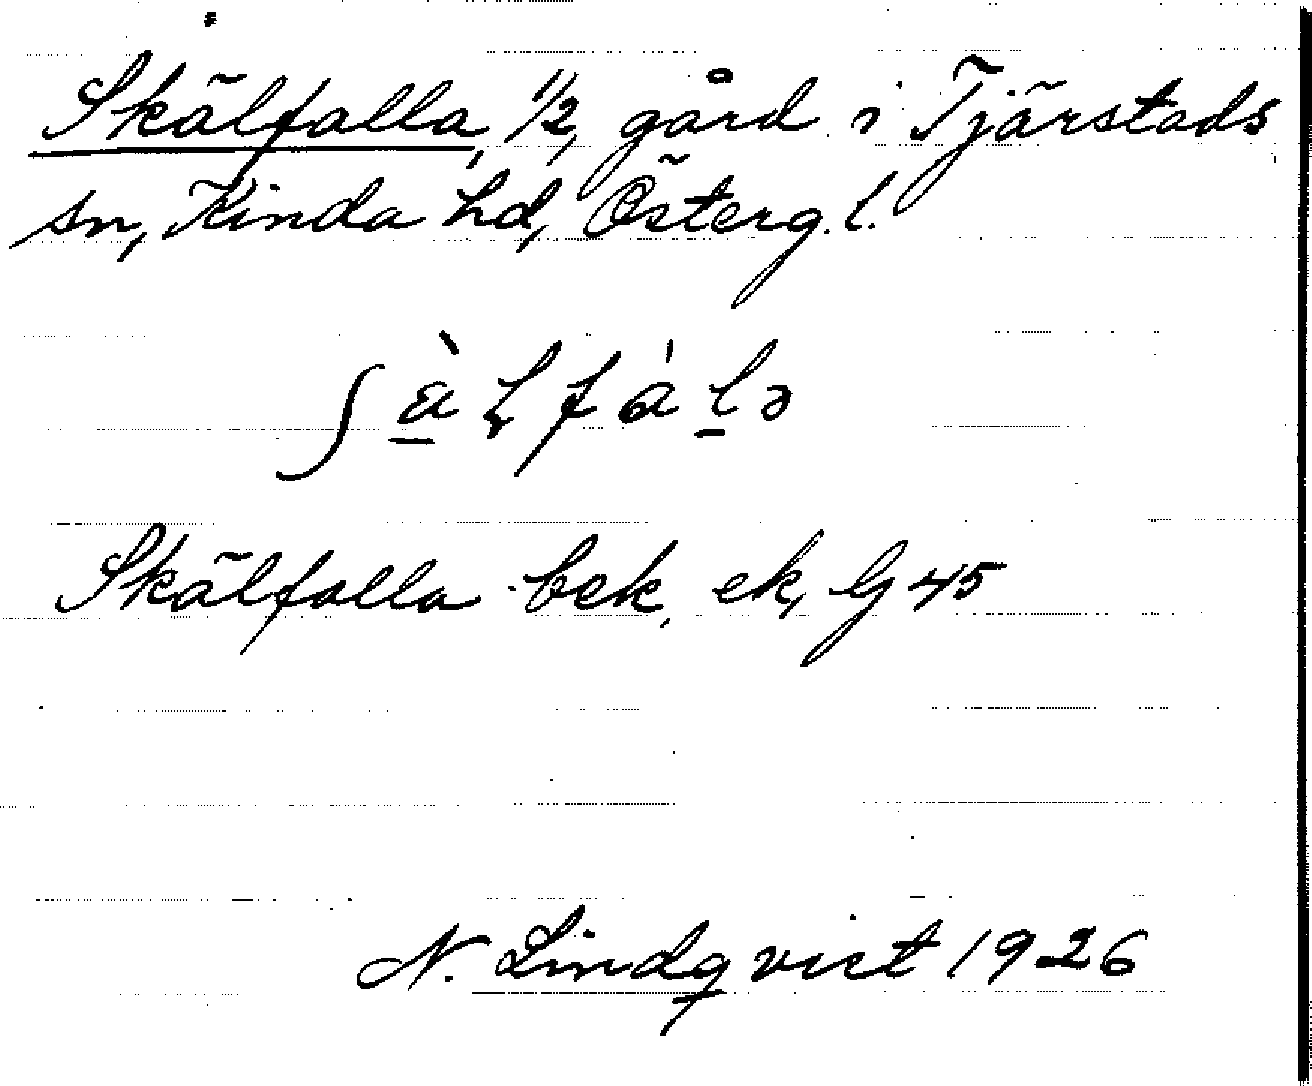 Skälfalla, 1/2, gård i Tjärstads
sn, Kinda hd, Österg. l.
Skälfalla bek, ek, G 45
N. Lindqvist 1926